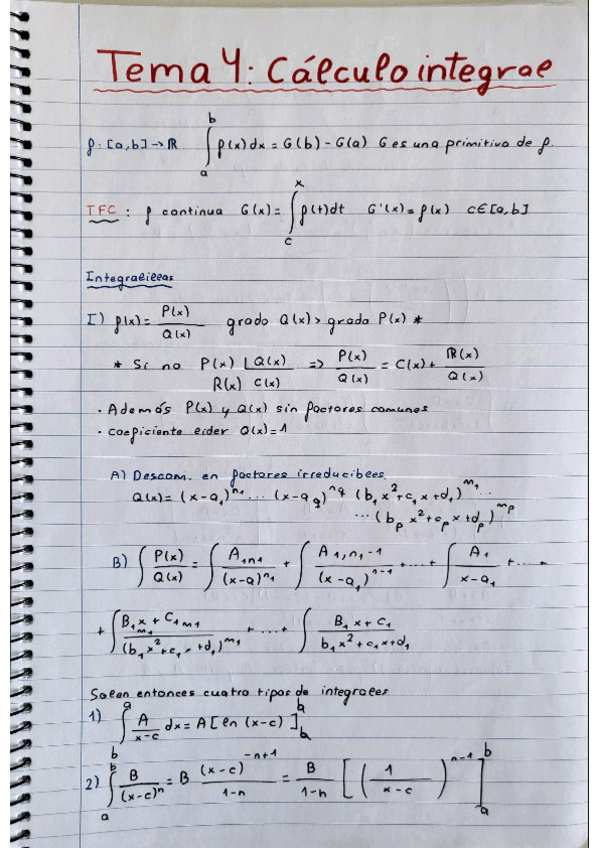 Tema 4: Cálculo integral
f: [a,b] → ℝ ∫_a^b f(x)dx = G(b) - G(a) G es una primitiva de f.
TFC: f continua G(x) = ∫_c^x f(t)dt G'(x) = f(x) c∈[a,b]
Integrabilidad
I) f(x) = P(x)/Q(x) grado Q(x) > grado P(x) *
* Si no P(x) | Q(x) => P(x)/Q(x) = C(x) + R(x)/Q(x)
R(x) C(x)
· Además P(x) y Q(x) sin factores comunes
· coeficiente lider Q(x) = 1
A) Descom. en factores irreducibles.
Q(x) = (x-a₁)^n₁ ... (x-a_q)^n_q (b₁x²+c₁x+d₁)^m₁ ...
... (b_p x²+c_p x+d_p)^m_p
B) ∫ P(x)/Q(x) = ∫ A₁n₁/(x-a)^n₁ + ∫ A₁,n₁-1/(x-a₁)^n-1 + ... + ∫ A₁/x-a₁ + ...
+ ∫ B₁x + C₁m₁/(b₁x²+c₁x+d₁)^m₁ + ... + ∫ B₁x + c₁/b₁x²+c₁x+d₁
Salen entonces cuatro tipos de integrales
1) ∫_b^a A/x-c dx = A[ln(x-c)]_b^a
2) ∫_a^b B/(x-c)^n = B (x-c)^-n+1/1-n = B/1-n [(1/x-c)^n-1]_a^b